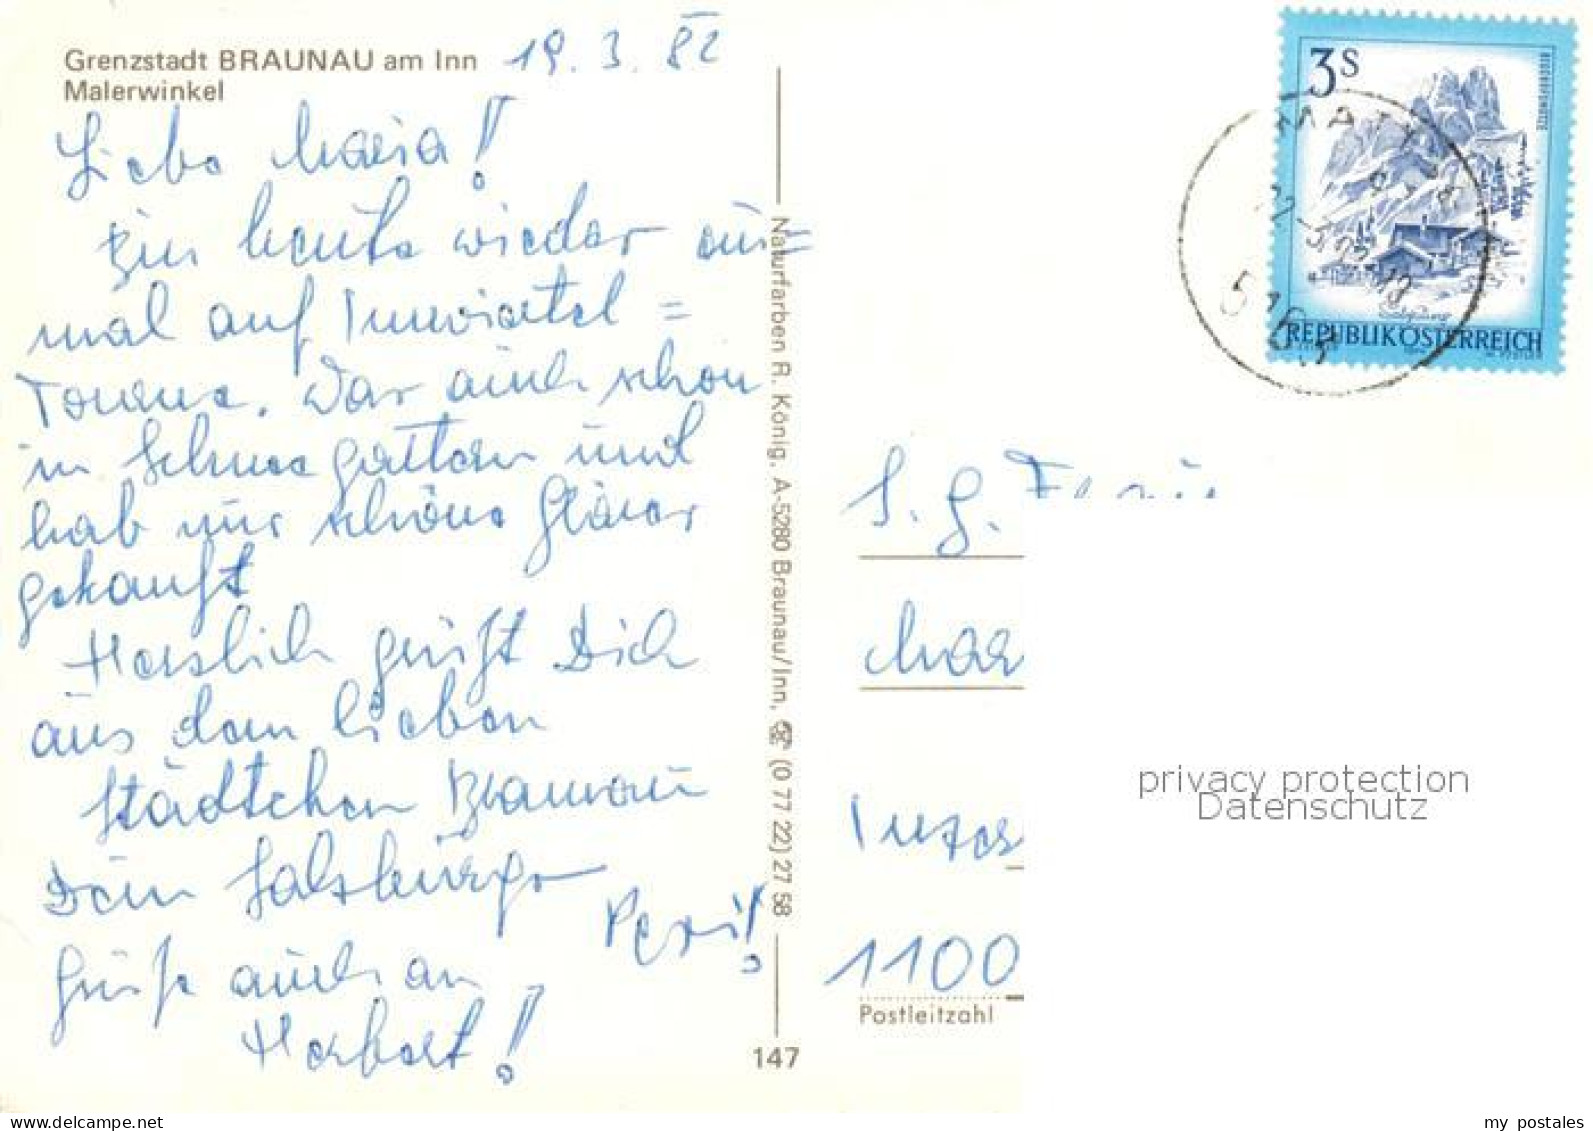 Grenzstadt BRAUNAU am Inn
Malerwinkel
19. 3. 82
Liebe Maria!
Bin heute wieder ein=
mal auf Innviertel=
Tournee. War auch schon
in Schneegattern und
hab mir schöne Gläser
gekauft
Herzlich grüßt Dich
aus dem lieben
Städtchen Braunau
Dein Salzburger
Peppi!
Grüße auch an
Herbert!
Naturfarben R. König, A-5280 Braunau/Inn, ☎ (0 77 22) 27 58
147
3S
REPUBLIK ÖSTERREICH
5163
S. g. Frau
Mar
Inzer
1100
Postleitzahl
privacy protection
Datenschutz
my postales